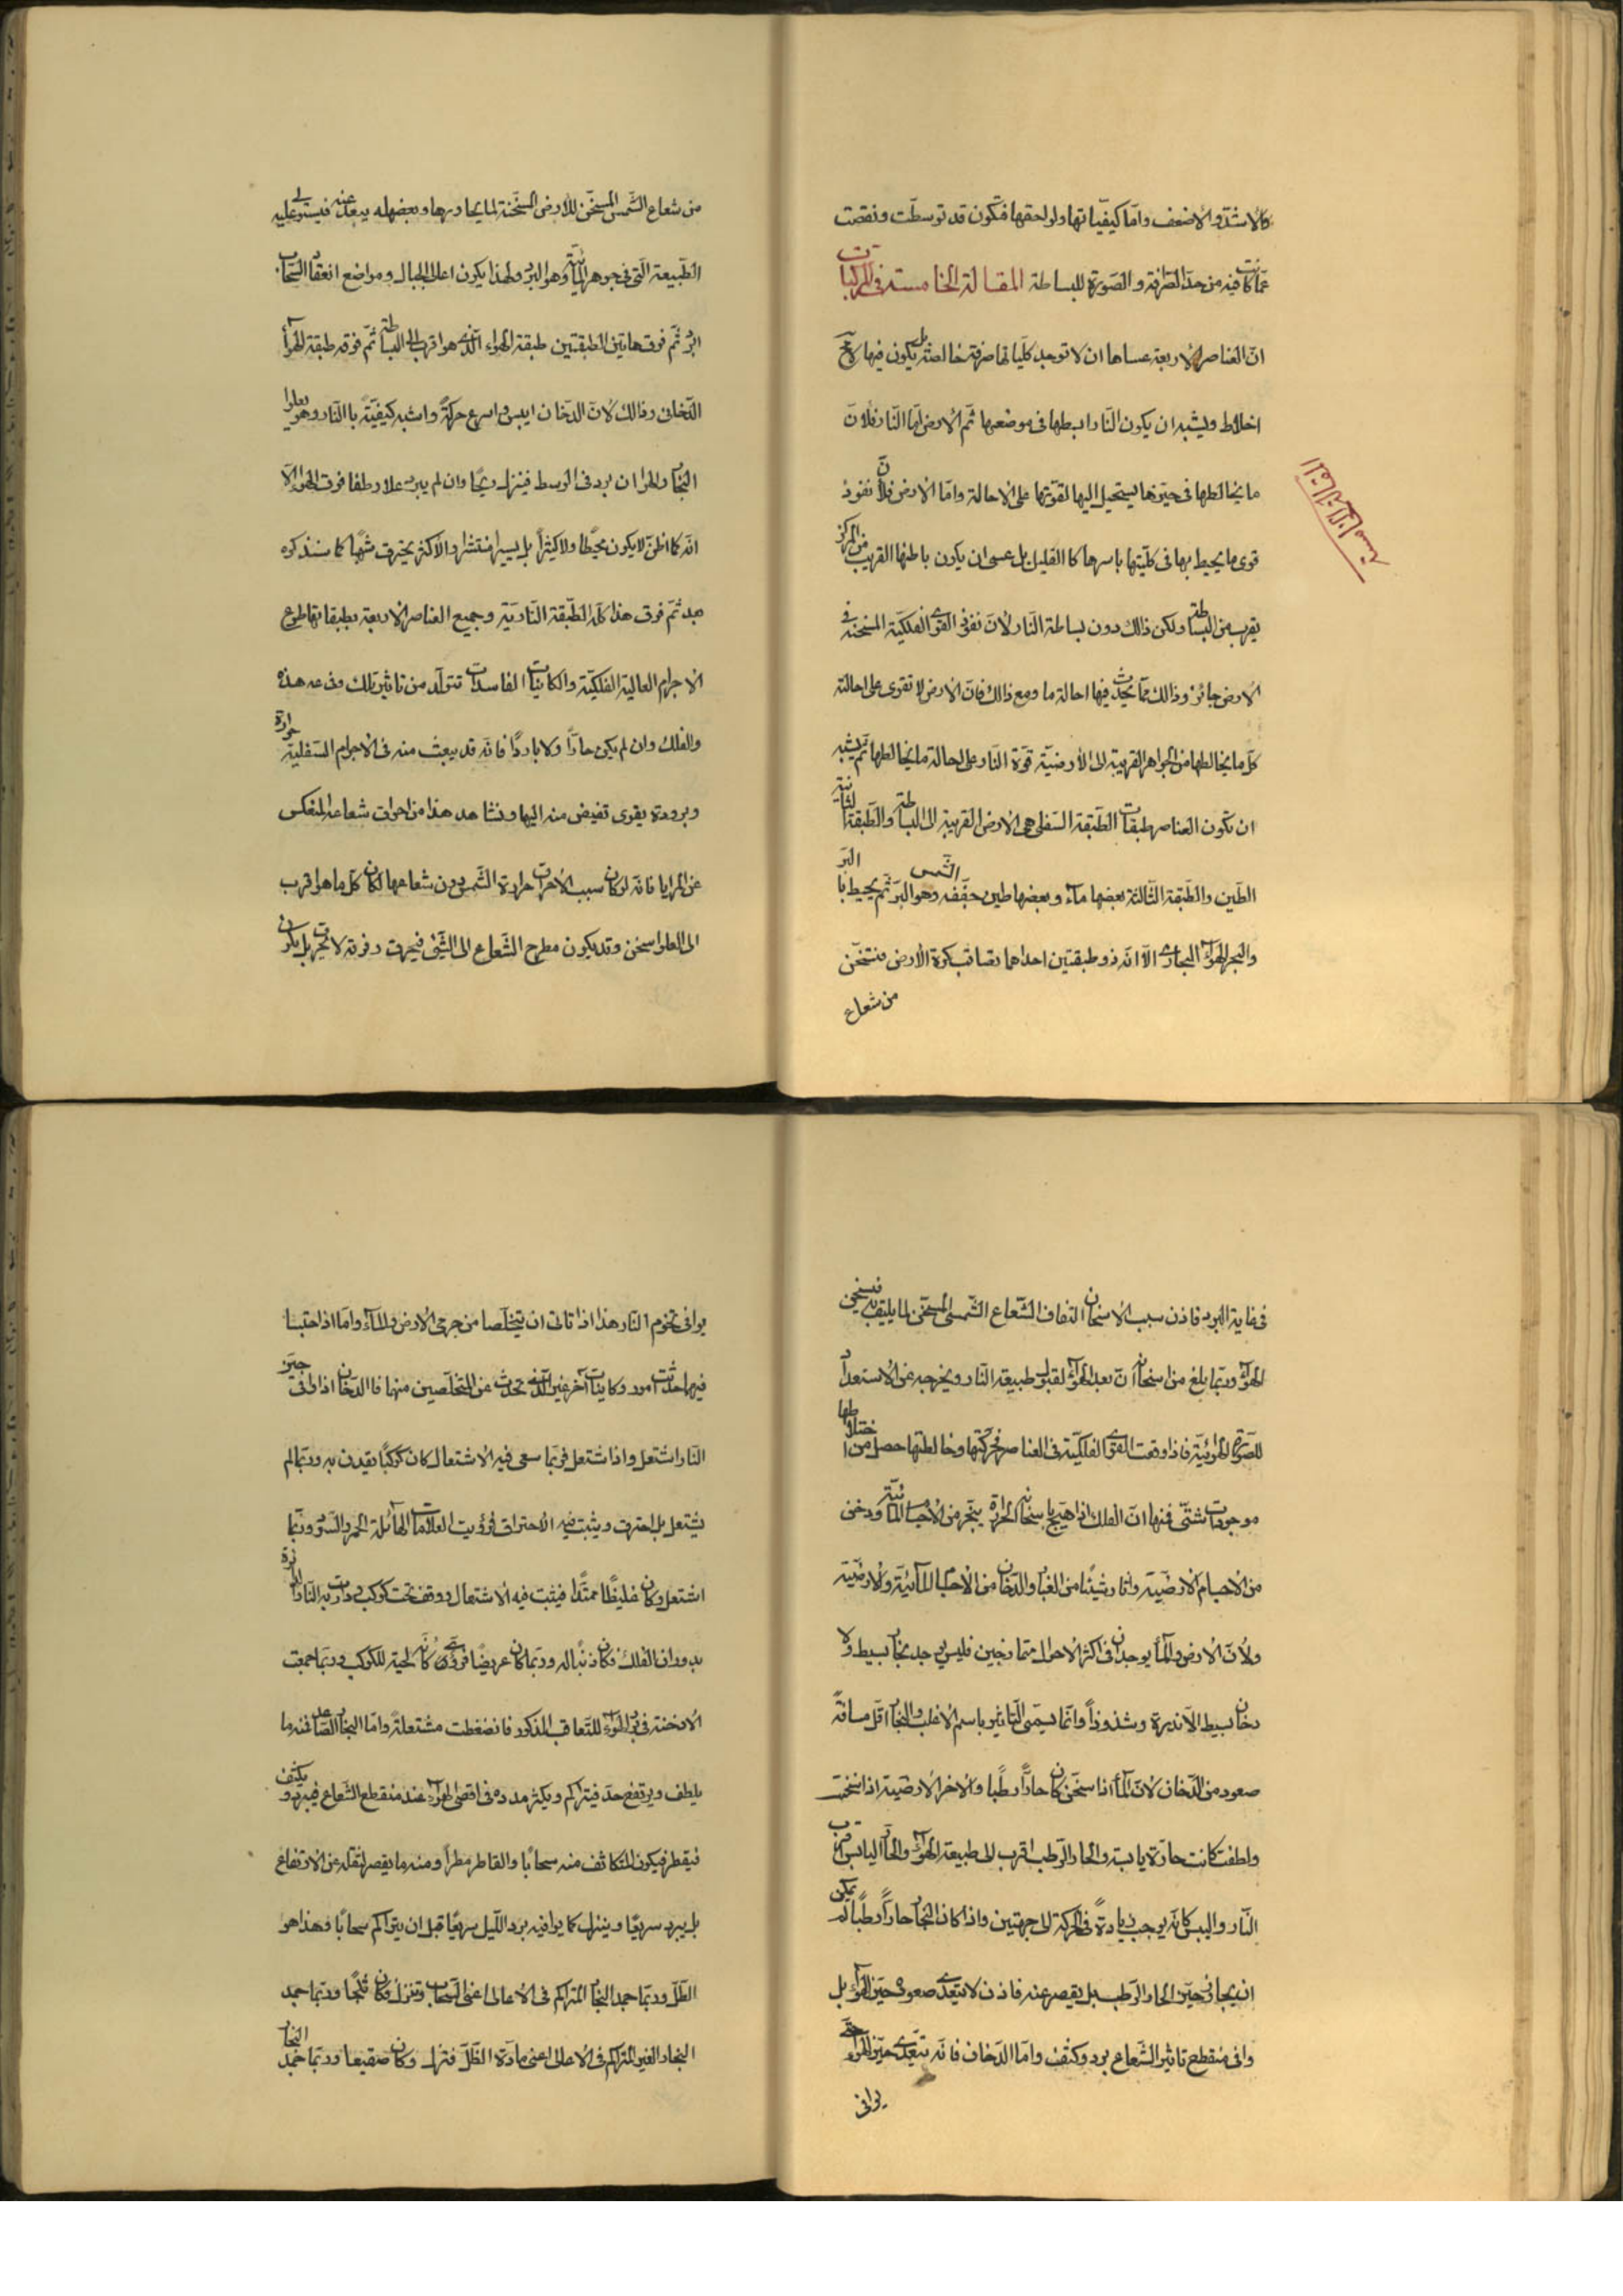 كالاشدّ والاضعف وامّا كيفيّاتها ولواحقها فتكون قد توسطّت ونقصت
عمّا كانت فيه من حدّ الصّرافة والصّورة للبساطة المقالة الخامسة فى المركبات
انّ العناصر الاربعة عساها ان لا توجد كلّياتها صرفة خالصة بل يكون فيها لا محة
اختلاط ويشبه ان يكون النّار ابسطها فى موضعها ثمّ الارض امّا النّار فلانّ
ما يخالطها فى حيّزها يستحيل اليها لقوّتها على الاحالة وامّا الارض فلانّ نفوذ
قوى ما يحيط بها فى كلّيتها باسرها كا القليل بل عسى ان يكون باطنها القريب من المركز
يقرب من البساطة ولكن ذالك دون بساطة النّار لانّ نفوذ القوى الفلكيّة المسخنة فى
الارض جائز وذالك ممّا يحدث فيها احالة ما ومع ذالك فانّ الارض لا تقوى على احالة
كلّ ما يخالطها من الجواهر القريبة الى الأرضيّة قوّة النّار على احالة ما يخالطها ثمّ يشبه
ان تكون العناصر طبقات الطّبقة السّفلى هى الارض القريبة الى البساطة والطّبقة الثانية
الطّين والطّبقة الثّالثة بعضها ماء وبعضها طين جفّفه الشّمس وهو البرّ ثمّ يحيط با البرّ
والبحر الهواء البخارى الّا انّه ذو طبقتين احداهما تصاقب كرة الأرض فتسّخن
من شعاع
من شعاع الشّمس المسخّن للأرض المسّخنة لما يجاورها وبعضه يبعد عنه فيستولى عليه
الطّبيعة الّتى فى جوهر المائيّة وهو البرد ولهذا يكون اعالى الجبال ومواضع انعقاد السّحاب
ابرد ثمّ فوق هاتين الطبقتين طبقة الهواء الّذى هو اقرب الى البساطة ثمّ فوقه طبقة الهواء
الدّخانى وذالك لانّ الدّخان ايبس واسرع حركةً واشبه كيفيّةً با النّار وهو يعلوا
البخار والهواء ان برد فى الوسط فينزل ريحًا وان لم يبرد علا وطفا فوق الهواء الّا
انّه كا اظنّ لا يكون محيطًا ولا كيثرًا بل يسيرا منتشرا والاكثر يحترق شهبا كما سنذكره
بعد ثمّ فوق هذا كلّه الطّبقة النّاريّة وجميع العناصر الاربعة بطبقاتها طوع
الاجرام العالية الفلكيّة والكاينات الفاسدات تتولّد من تاثير تلك وطاعه هذه
والفلك وان لم يكن حارّا ولا باردًا فانّه قد يبعث منه فى الاجرام السّفليّة حرارة
وبرودة بقوى تفيض منه اليها ونشاهد هذا من احراق شعاعه المنعكس
عن المرايا فانّه لو كان سبب الاحراق حرارة الشّمس دون شعاعها لكان كلّ ما هو اقرب
الى العلو اسخن وقد يكون مطرح الشّعاع الى الشّئ فيحرق وفوقه لا يحترق بل يكون
فى غاية البرد فاذن سبب الاسخان التفاف الشّعاع الشّمسى المسخّن لما يليتف به فيسخن
الهواء وربّما بلغ من اسخانه ان تعدّ الهواء لقبول طبيعة النّار ويخرجه عن الاستعداد
للصّورة الهوائيّة فاذا وقعت القوى الفلكيّة فى العناصر فحرّكتها وخالطتها حصل من اختلاطها
موجودات شتّى فمنها انّ الفلك اذا هيّج باسخانه الحرارة يبخّر من الاجسام المائيّة ودخن
من الاجسام الارضيّة واثار شيئا من الغبار والدّخان من الاجسام المآئيّة والارضيّة
ولأنّ الارض والمآء يوجدان فى اكثر الاحوال متمازجين فليس يوجد بخار بسيط ولا
دخان بسيط الّا ندرة وشذوذاً وانّما يسمّى التّاثير باسم الاغلب والبخار اقل مسافة
صعود من الدّخان لانّ المآء اذا سخّن كان حارًّا رطبًا والاخر الارضيّة اذا سخنت
ولطفت كانت حارّة يابسة والحارّ الرّطب اقرب الى طبيعة الهواء والحارّ اليابس اقرب
النّار واليبس كانّه يوجب زيادةً فى الحركة الى جهتين واذا كان البخار حارّاً رطبًا لم يمكن
ان يجاوز حيّز الحار الرّطب بل يقصر عنه فاذن لا يتعدّى صعوده حيّز الهواء بل
وافى منقطع تاثير الشّعاع برد وكثف وامّا الدّخان فانّه يتعدّى حيّز الهواء حتّى
يوافى
يوافى تخوم النّار هذا اذا تاتى ان يتخلّصا من جرمى الارض والمآء وامّا اذا احتبسا
فيهما حدثت امور وكاينات آخر غير الّتى تحدث عن المتخلّصين منها فا الدّخان اذا وافى حيّز
النار اشتعل واذا اشتعل فربّما سعى فيه الاشتعال كان كوكبًا يقذف به وربّما لم
يشتعل بل احترق ويثبت فيه الاحتراق فرؤيت العلامات الهآئلة الحمر والسّود وربّما
اشتعل وكان غليظًا ممتدًّا فيثبت فيه الاشتعال ووقف تحت كوكب ودارت به النّار الدائرة
بدوران الفلك فكان ذنبًا له وربّما كان عريضًا فرؤى كانّه لحية للكوكب وربّما حميت
الادخنة فى برد الهواء للتّعاقب المذكور فانضغطت مشتعلةً وامّا البخار الصّاعد فمنه ما
يلطف ويرتفع جدّ فيتراكم ويكثر مدده فى اقصى الهواء عند منقطع الشّعاع فيبرد ويكثف
فيقطر فيكون المتكاثف منه سحابًا والقاطر مطراً ومنه ما يقصر لثقله عن الارتفاع
بل يبرد سريعًا وينزل كما يوافيه برد اللّيل سريعًا قبل ان يتراكم سحابًا وهذا هو
الطّلّ وربّما جمد البخار المتراكم فى الاعالى اعنى السّحاب وتنزل فكان ثلجًا وربّما جمد
البخار الغير المتراكم فى الاعالى اعنى مادّة الطّلّ فنزل وكان صقيعا وربّما جمد البخار